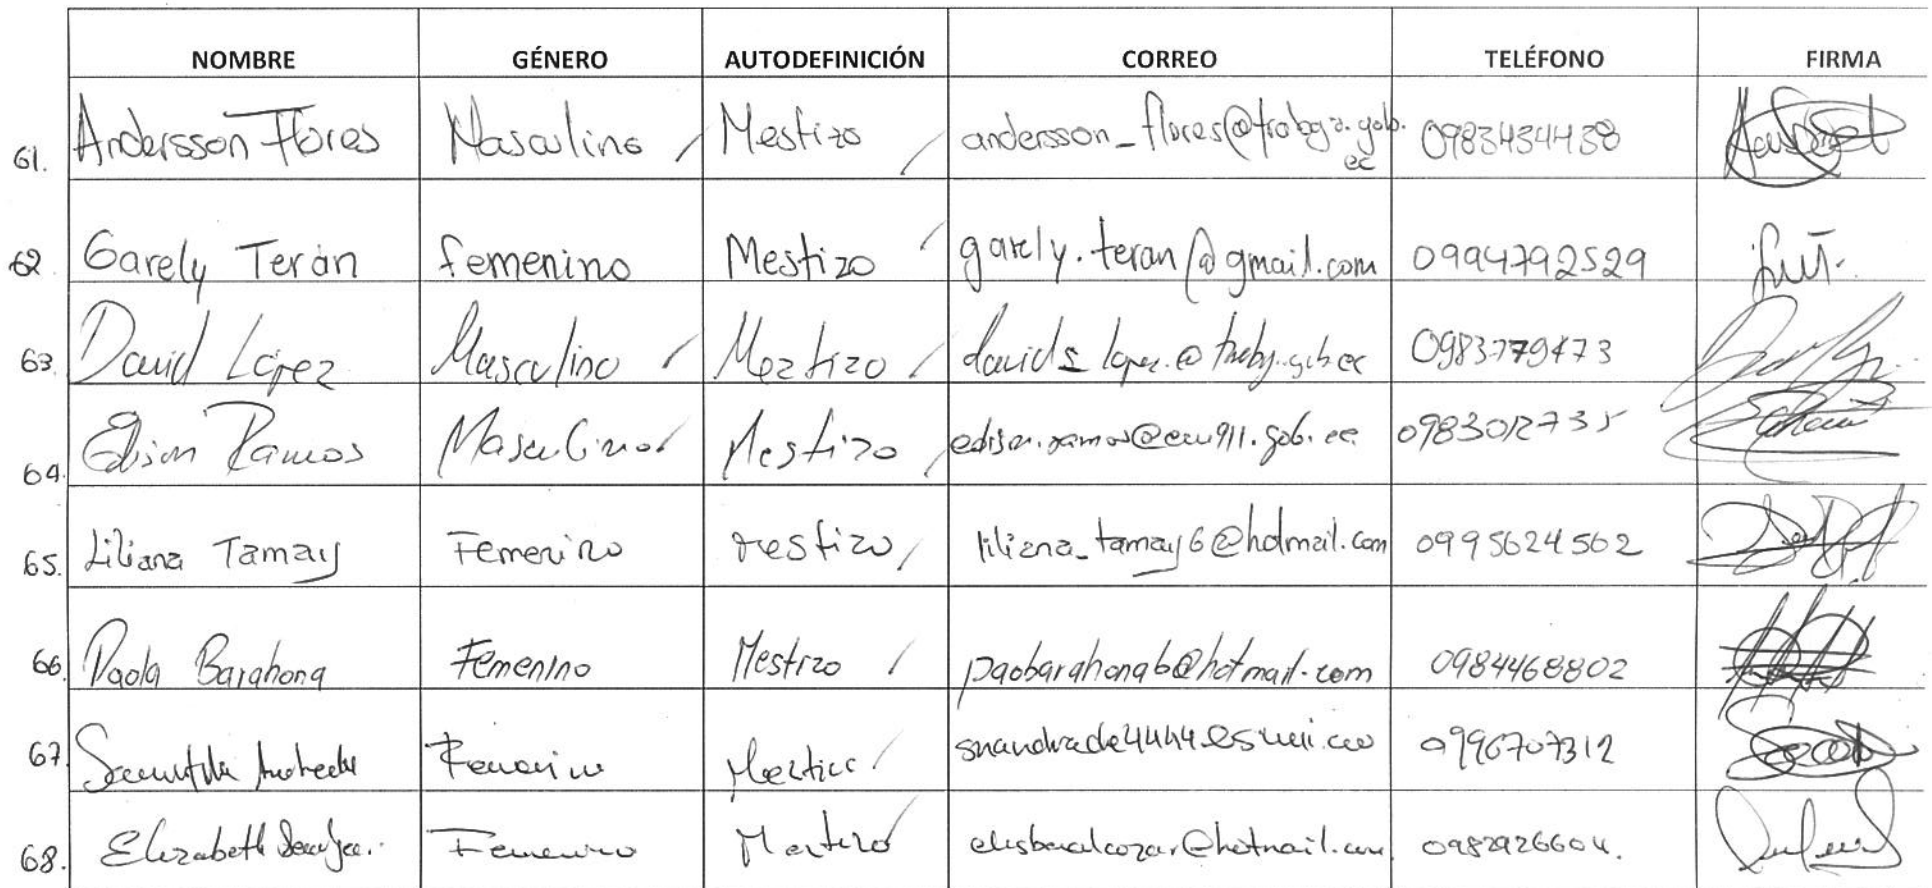 NOMBRE GÉNERO AUTODEFINICIÓN CORREO TELÉFONO FIRMA
61. Andersson Flores Masculino Mestizo andersson_flores@trabajo.gob.ec 0983434438
62 Garely Terán femenino Mestizo garely.teran@gmail.com 0994792529
63. David López Masculino Meztizo 0983779473
64. Edison Ramos Masculino Mestizo edison.ramos@ecu911.gob.ec 0983012735
65. Liliana Tamay Femenino mestizo liliana_tamay6@hotmail.com 0995624562
66. Paola Barahona Femenino Mestizo paobarahona6@hotmail.com 0984468802
67. Femenino Meztizo 0996707312
68. Elizabeth Femenino Mestizo 0982926604.